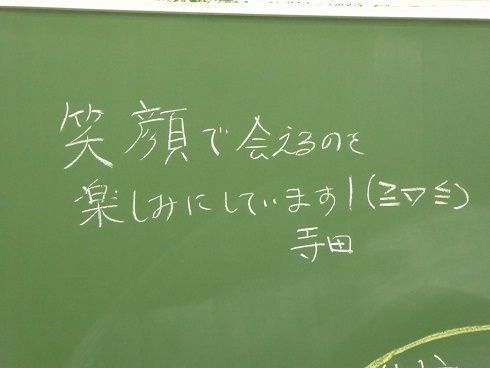 笑顔で会えるのを
楽しみにしています!(≧▽≦)
寺田